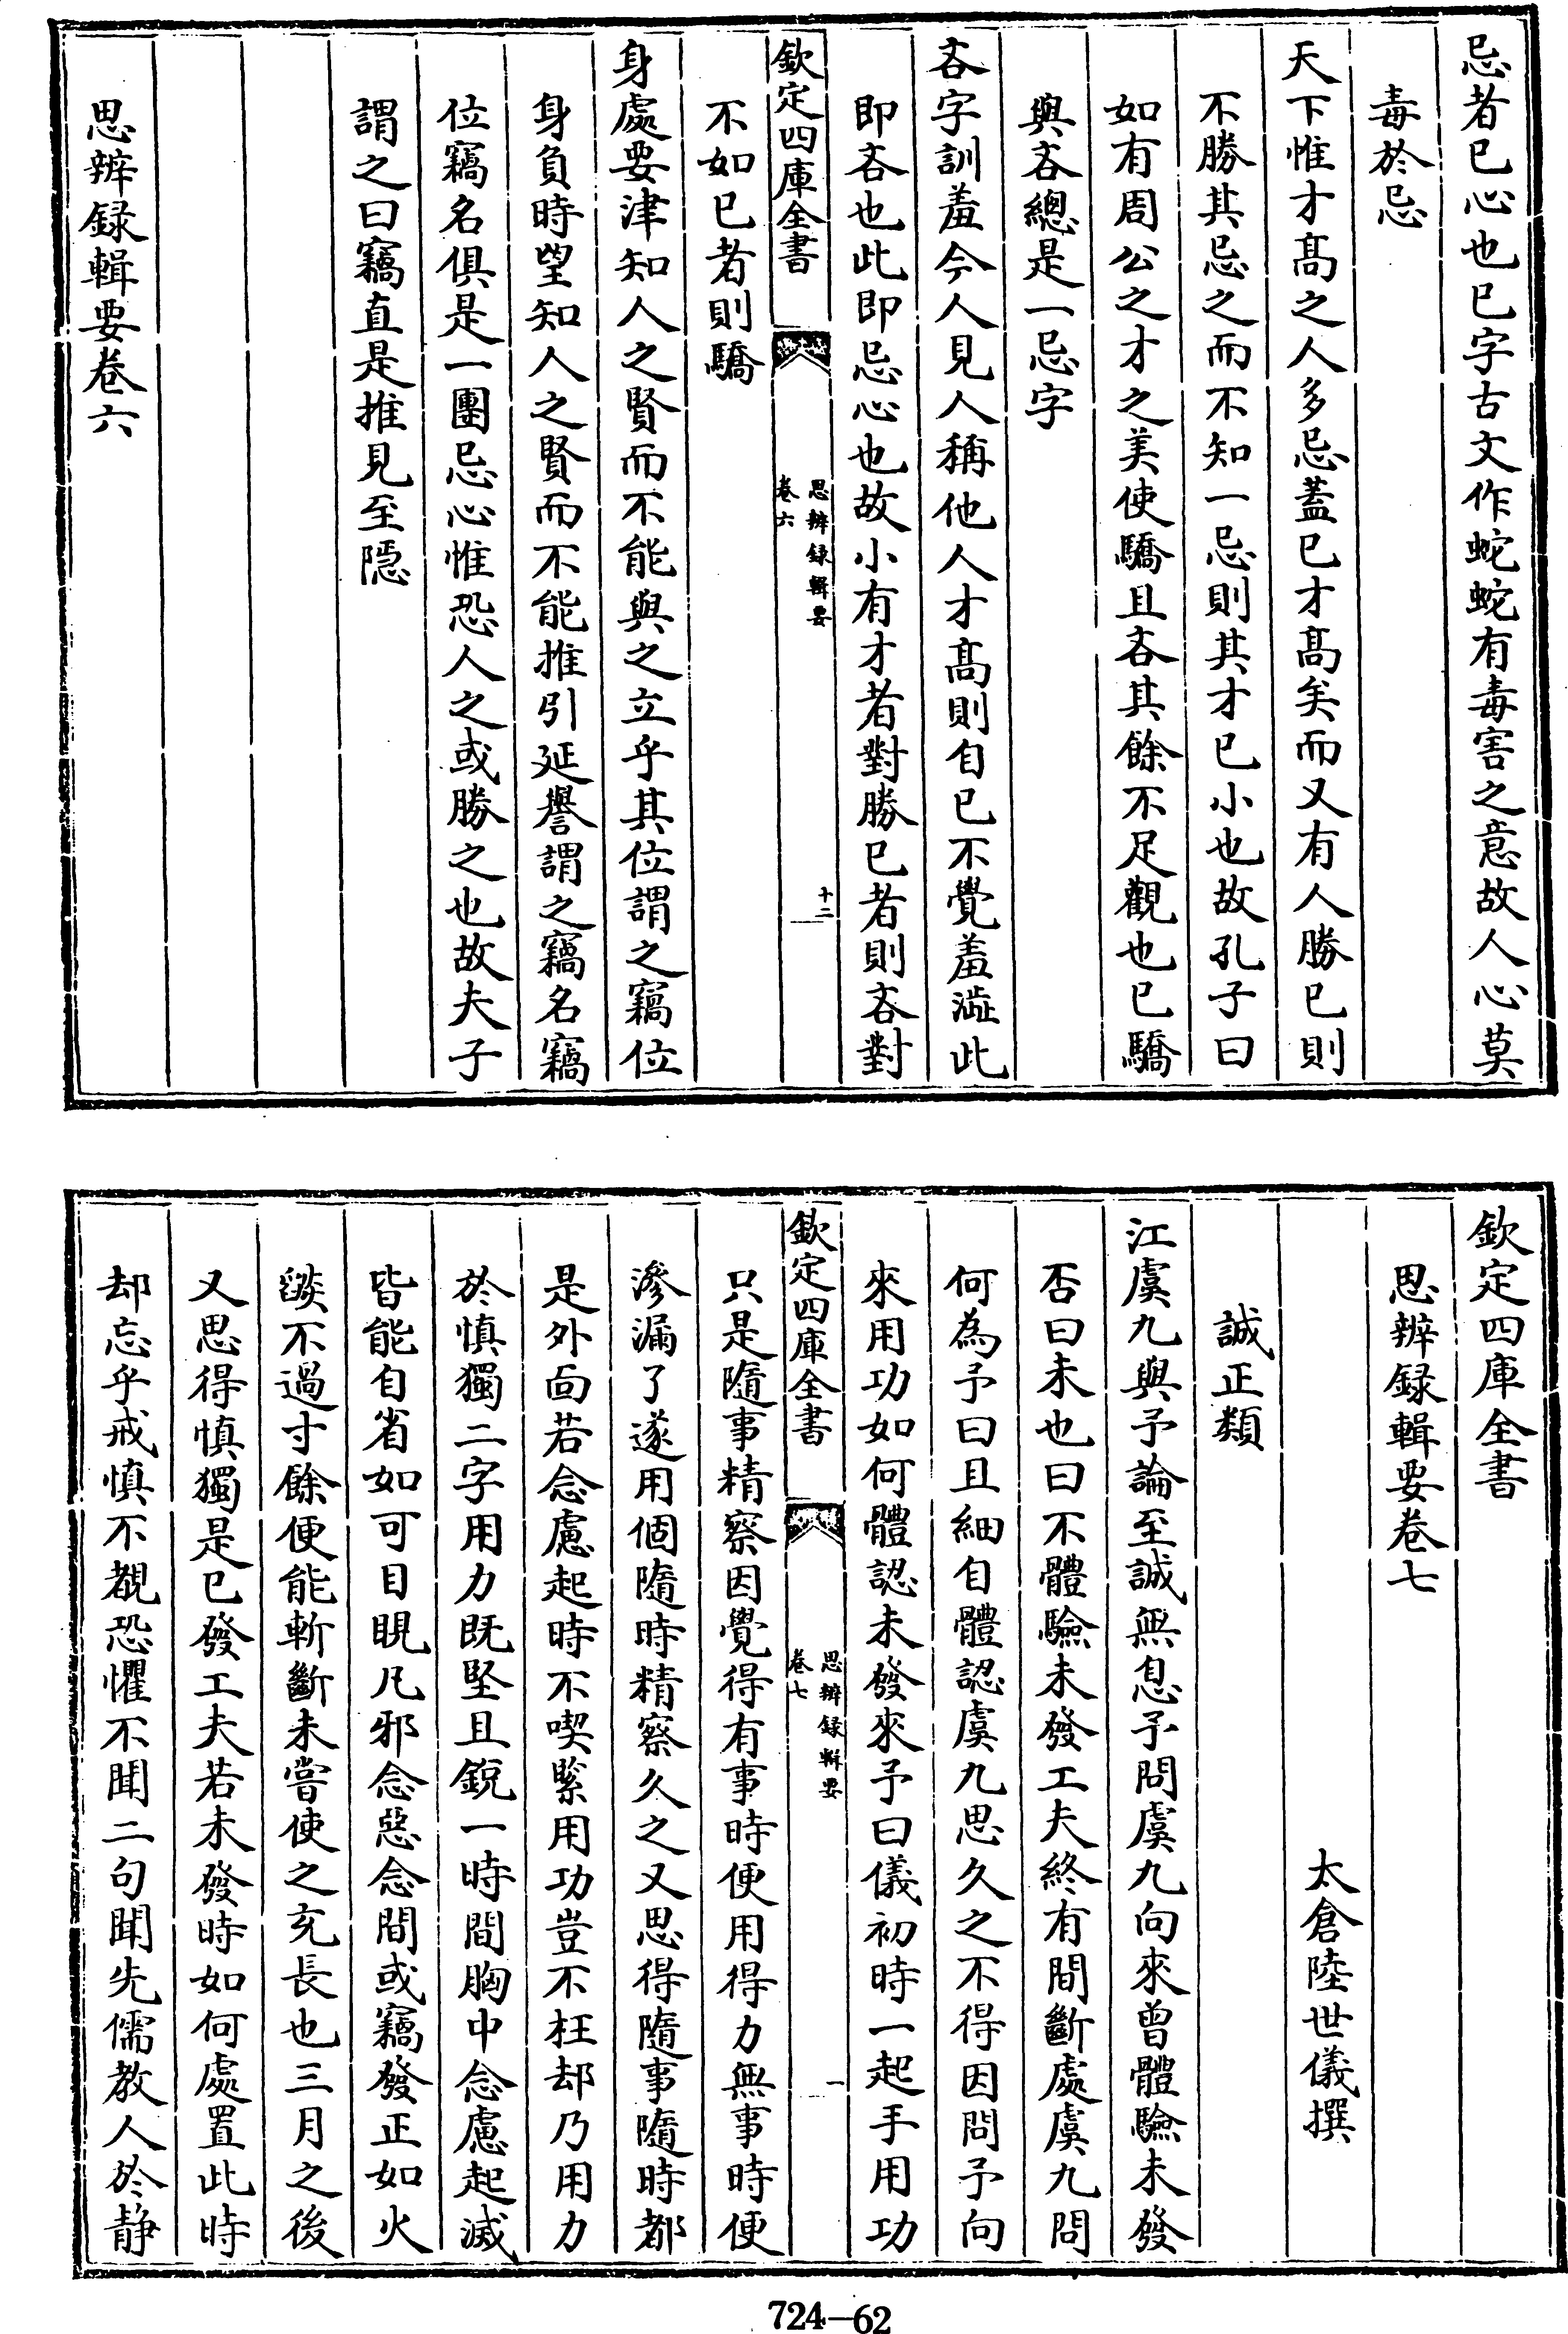 忌者已心也已字古文作蛇蛇有毒害之意故人心莫
毒於忌
天下惟才髙之人多忌蓋已才髙矣而又有人勝已則
不勝其忌之而不知一忌則其才已小也故孔子曰
如有周公之才之美使驕且吝其餘不足觀也已驕
與吝總是一忌字
吝字訓羞今人見人稱他人才髙則自已不覺羞澁此
即吝也此即忌心也故小有才者對勝已者則吝對
欽定四庫全書
思辨録輯要
卷六
十二
不如已者則驕
身處要津知人之賢而不能與之立乎其位謂之竊位
身負時望知人之賢而不能推引延譽謂之竊名竊
位竊名俱是一團忌心惟恐人之或勝之也故夫子
謂之曰竊直是推見至隠
思辨録輯要卷六
欽定四庫全書
思辨録輯要卷七
太倉陸世儀撰
誠正類
江虞九與予論至誠無息予問虞九向來曾體驗未發
否曰未也曰不體驗未發工夫終有間斷處虞九問
何為予曰且細自體認虞九思久之不得因問予向
來用功如何體認未發來予曰儀初時一起手用功
欽定四庫全書
思辨録輯要
卷七
一
只是隨事精察因覺得有事時便用得力無事時便
滲漏了遂用個隨時精察久之又思得隨事隨時都
是外面若念慮起時不喫緊用功豈不枉却乃用力
於慎獨二字用力既堅且銳一時間胸中念慮起滅
皆能自省如可目睍凡邪念惡念間或竊發正如火
燄不過寸餘便能斬斷未嘗使之充長也三月之後
又思得慎獨是已發工夫若未發時如何處置此時
却忘乎戒慎不覩恐懼不聞二句聞先儒教人於静
724—62